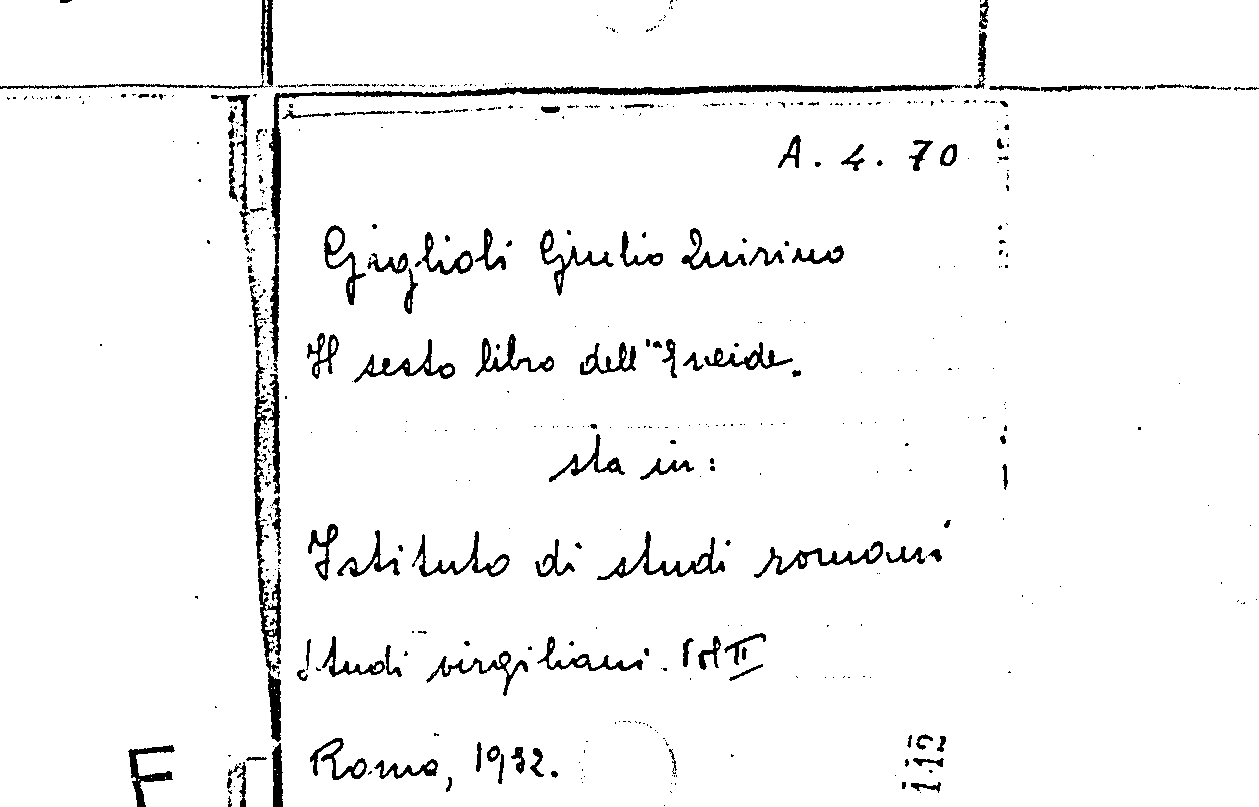 A. 4. 70
Giglioli Giulio Quirino
Il sesto libro dell'"Eneide.
sta in:
Istituto di studi romani
Studi virgiliani. Vol II
Roma, 1932.
F